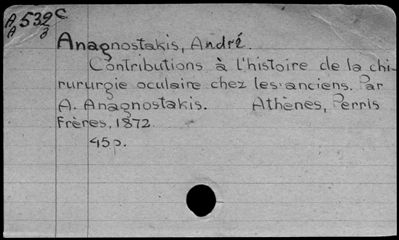 A 532 C
A 3
Anagnostakis, André.
Contributions à l'histoire de la chi-
rururgie oculaire chez les anciens. Par
A. Anagnostakis. Athènes, Perris
Frères, 1872
45p.